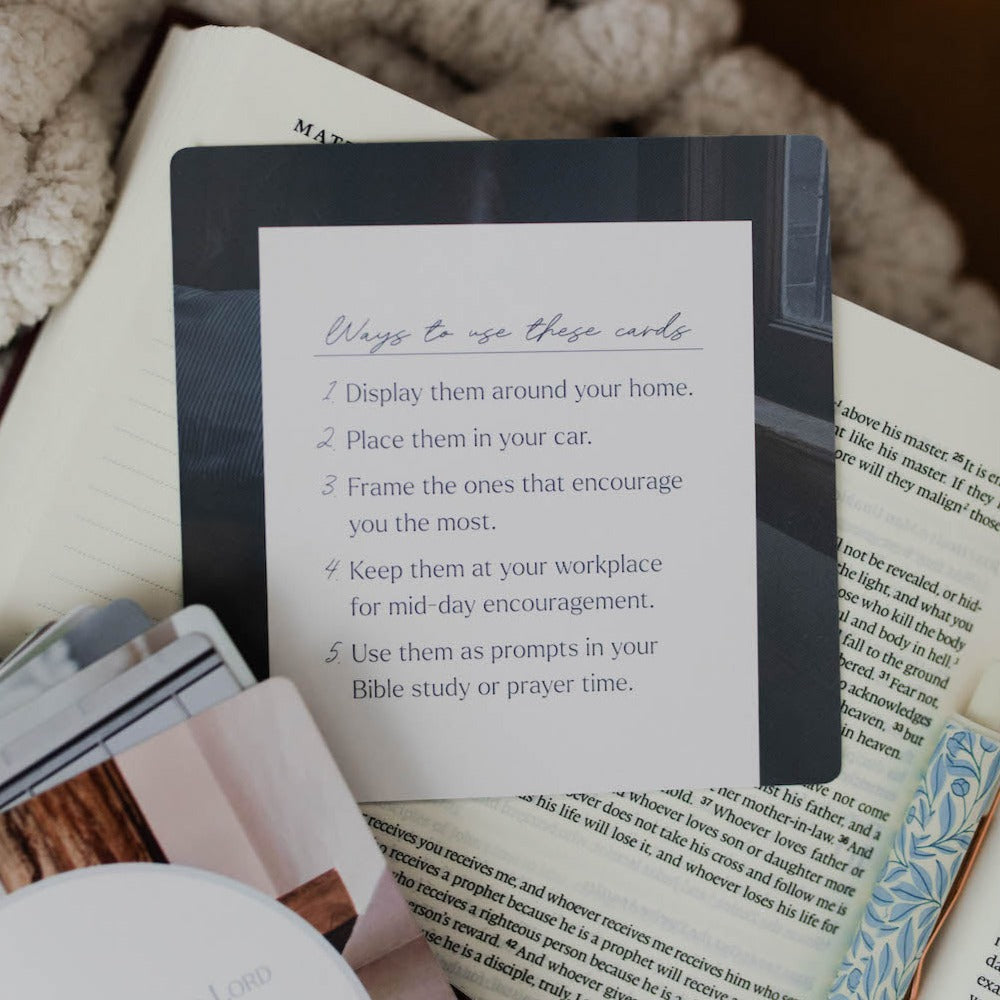 MAT
Ways to use these cards
1. Display them around your home.
2. Place them in your car.
3. Frame the ones that encourage
you the most.
4. Keep them at your workplace
for mid-day encouragement.
5. Use them as prompts in your
Bible study or prayer time.
above his master. 25 It is
like his master. If they
will they malign² those
not be revealed, or hid-
the light, and what you
who kill the body
and body in hell.
fall to the ground
31 Fear not,
acknowledges
heaven, 33 but
in heaven.
have not come
his father, and a
her mother-in-law. 36 And
37 Whoever loves father or
and whoever loves son or daughter more
does not take his cross and follow me is
his life will lose it, and whoever loses his life for
receives you receives me, and whoever receives me receives him who
receives a prophet because he is a prophet will receive
who receives a righteous person because he is a
reward. 42 And whoever
he is a disciple, truly, I
LORD